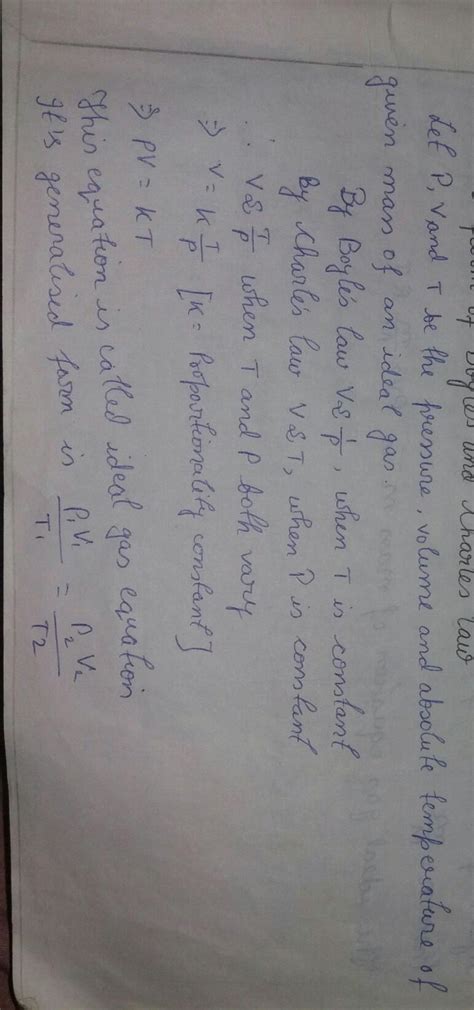 of Boyles and Charles law
Let P, V and T be the pressure, volume and absolute temperature of
given mass of an ideal gas.
By Boyle's law V ∝ 1/P, when T is constant
By Charle's law V ∝ T, when P is constant
∴ V ∝ T/P when T and P both vary
⇒ V = K T/P [K = Proportionality constant]
⇒ PV = KT
This equation is called ideal gas equation
It's generalised form is P₁V₁/T₁ = P₂V₂/T₂